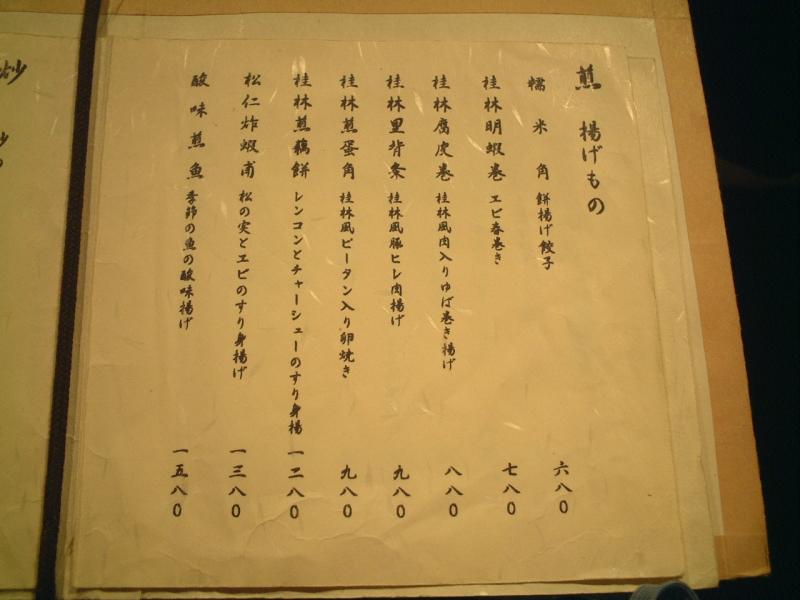 煎 揚げもの
糯米角 餅揚げ餃子 六八0
桂林明蝦巻 エビ春巻き 七八0
桂林腐皮巻 桂林風肉入りゆば巻き揚げ 八八0
桂林里背条 桂林風豚ヒレ肉揚げ 九八0
桂林煎蛋角 桂林風ピータン入り卵焼き 九八0
桂林煎藕餅 レンコンとチャーシューのすり身揚 一二八0
松仁炸蝦甫 松の実とエビのすり身揚げ 一三八0
酸味煎魚 季節の魚の酸味揚げ 一五八0